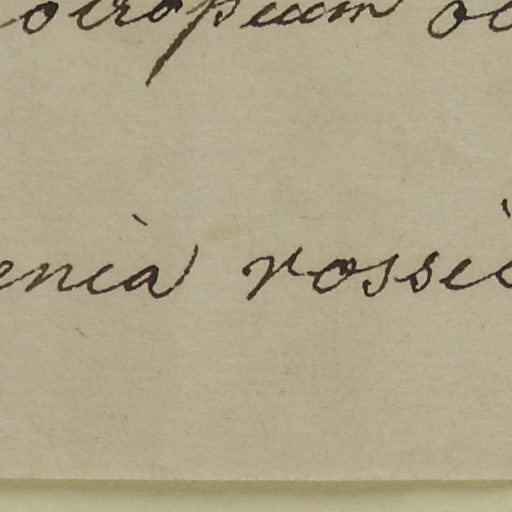 otropium oc
enia rossic